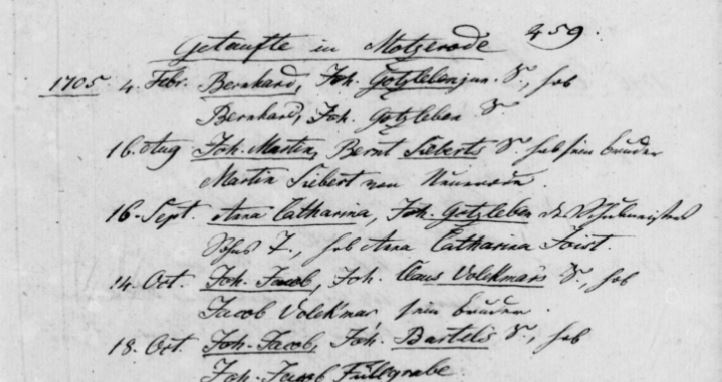 Getaufte in Motzerode 459.
1705. 4. Febr. Bernhard, Joh. Gotzleben jun. S., hob
Bernhard, Joh. Gotzleben S.
16. Aug Joh. Martin, Bernt Sieberts S. hob sein bruder
Martin Siebert von
16. Sept. Anna Catharina, Joh. Gotzleben des Schulmeisters
T., hob Anna Catharina Joist.
14. Oct. Joh. Jacob, Joh. Claus Volckmars S., hob
Jacob Volckmar sein bruder.
18. Oct. Joh. Jacob, Joh. Bartels S., hob
Joh. Jacob Füllgrabe.